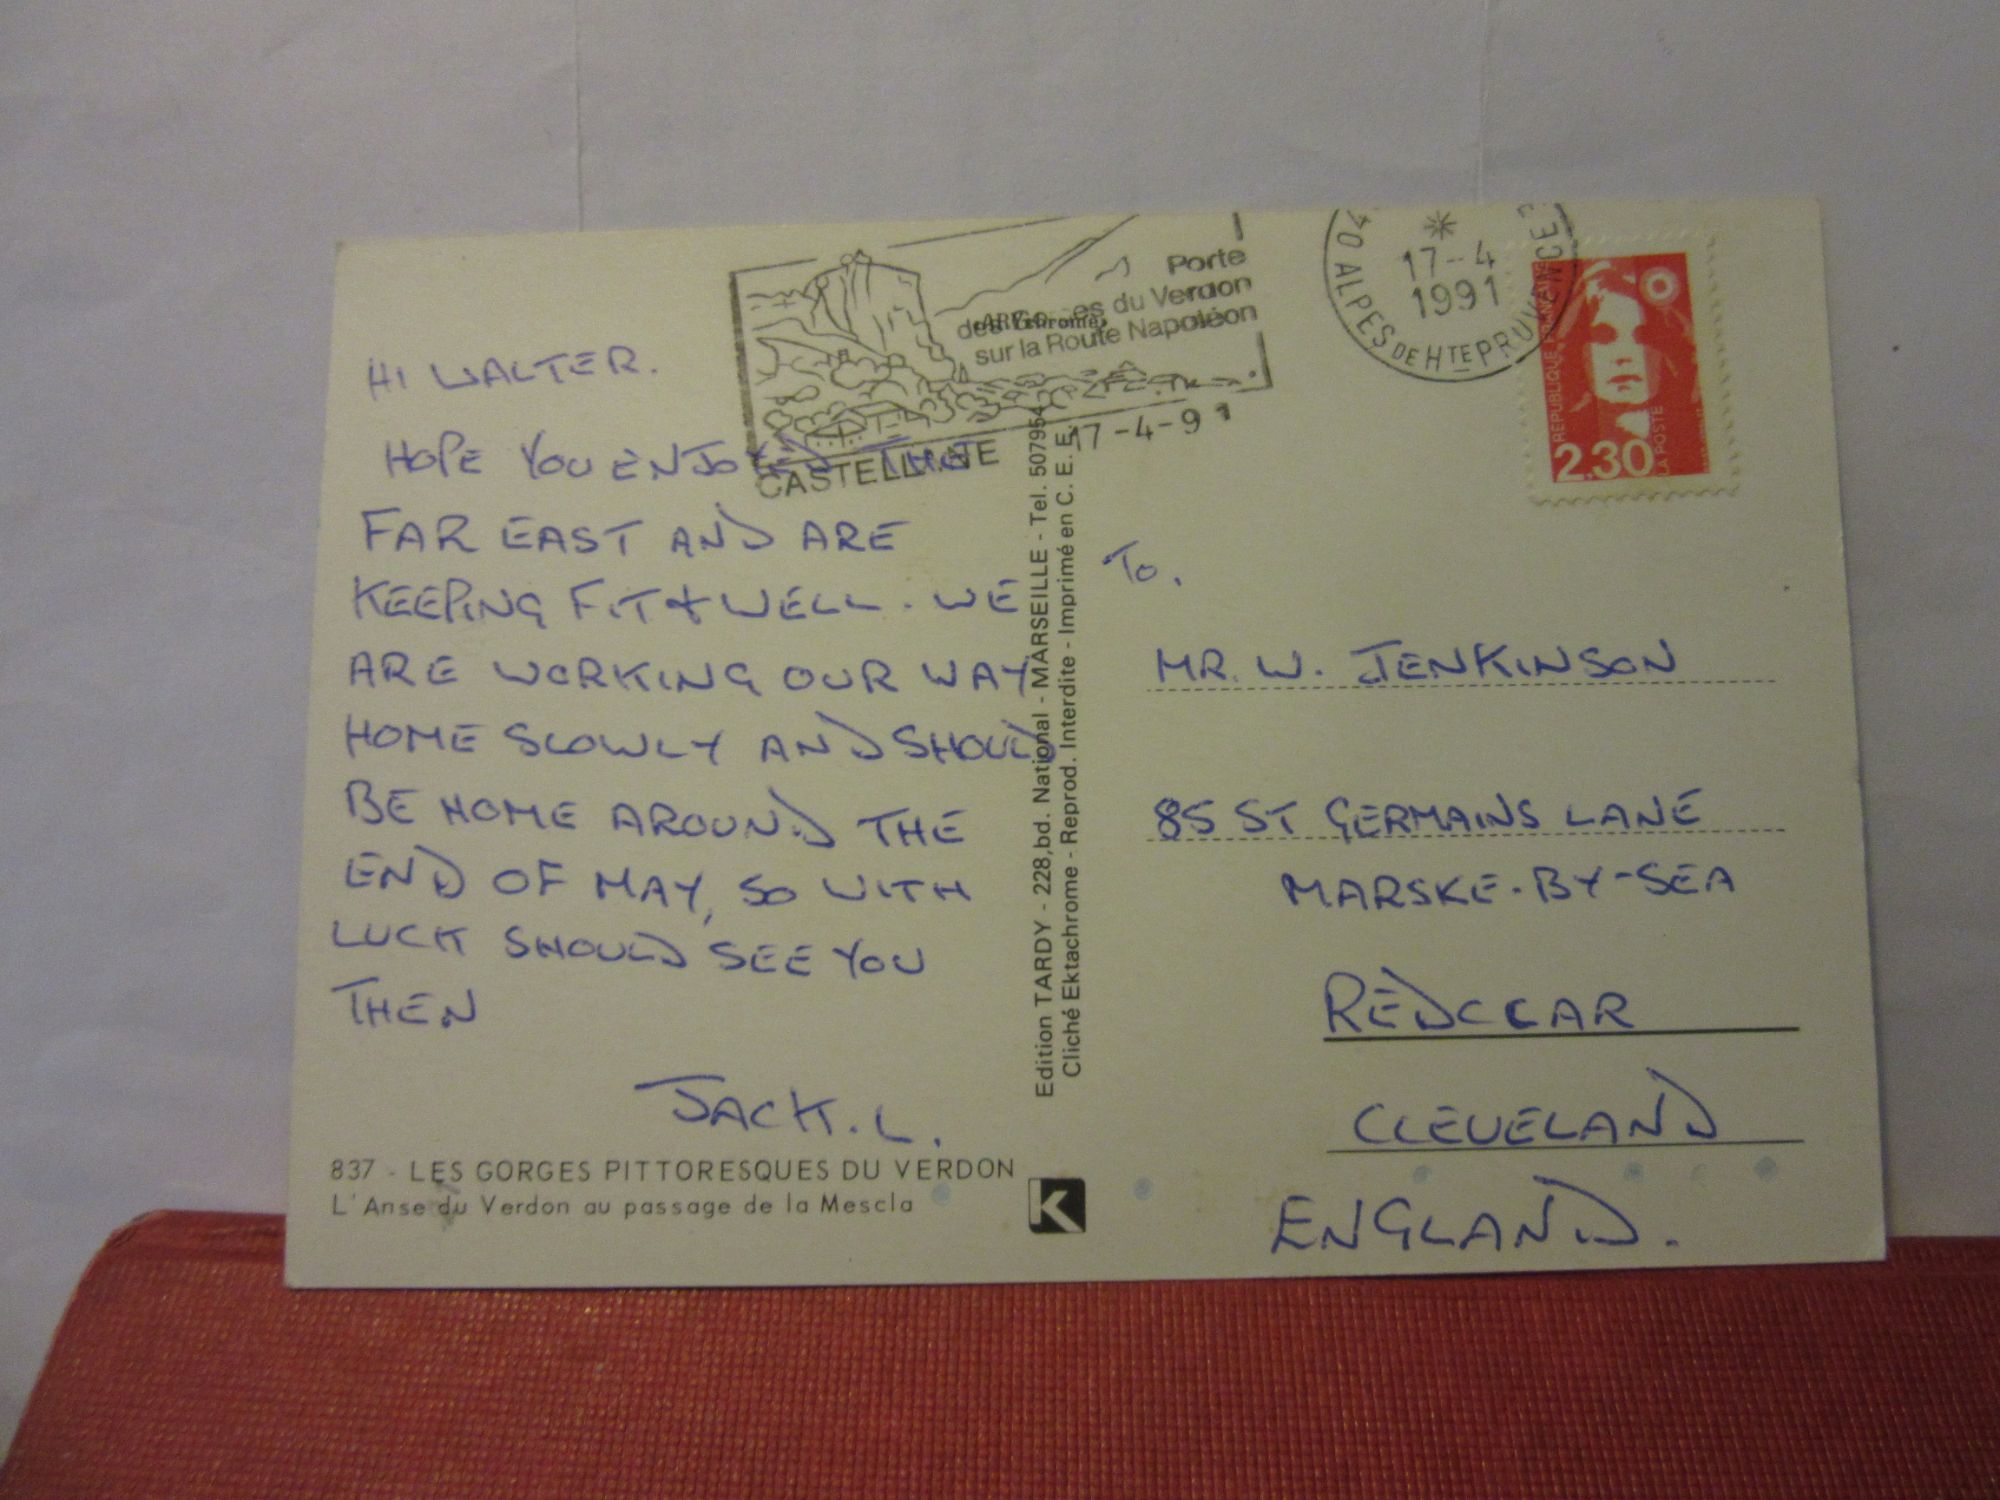 Porte
des Gorges du Verdon
sur la Route Napoléon
CASTELLANE 17-4-91
04 ALPES DE HTE PROVENCE
17-4
1991
REPUBLIQUE FRANÇAISE
2,30
LA POSTE
HI WALTER.
HOPE YOU ENJOYED THE
FAR EAST AND ARE
KEEPING FIT & WELL. WE
ARE WORKING OUR WAY
HOME SLOWLY AND SHOULD
BE HOME AROUND THE
END OF MAY, SO WITH
LUCK SHOULD SEE YOU
THEN
JACK. L.
837 - LES GORGES PITTORESQUES DU VERDON
L'Anse du Verdon au passage de la Mescla
Edition TARDY - 228, bd. National - MARSEILLE - Tel. 507954
Cliché Ektachrome - Reprod. Interdite - Imprimé en C. E. E.
K
TO.
MR. W. JENKINSON
85 ST GERMAINS LANE
MARSKE-BY-SEA
REDCCAR
CLEVELAND
ENGLAND.